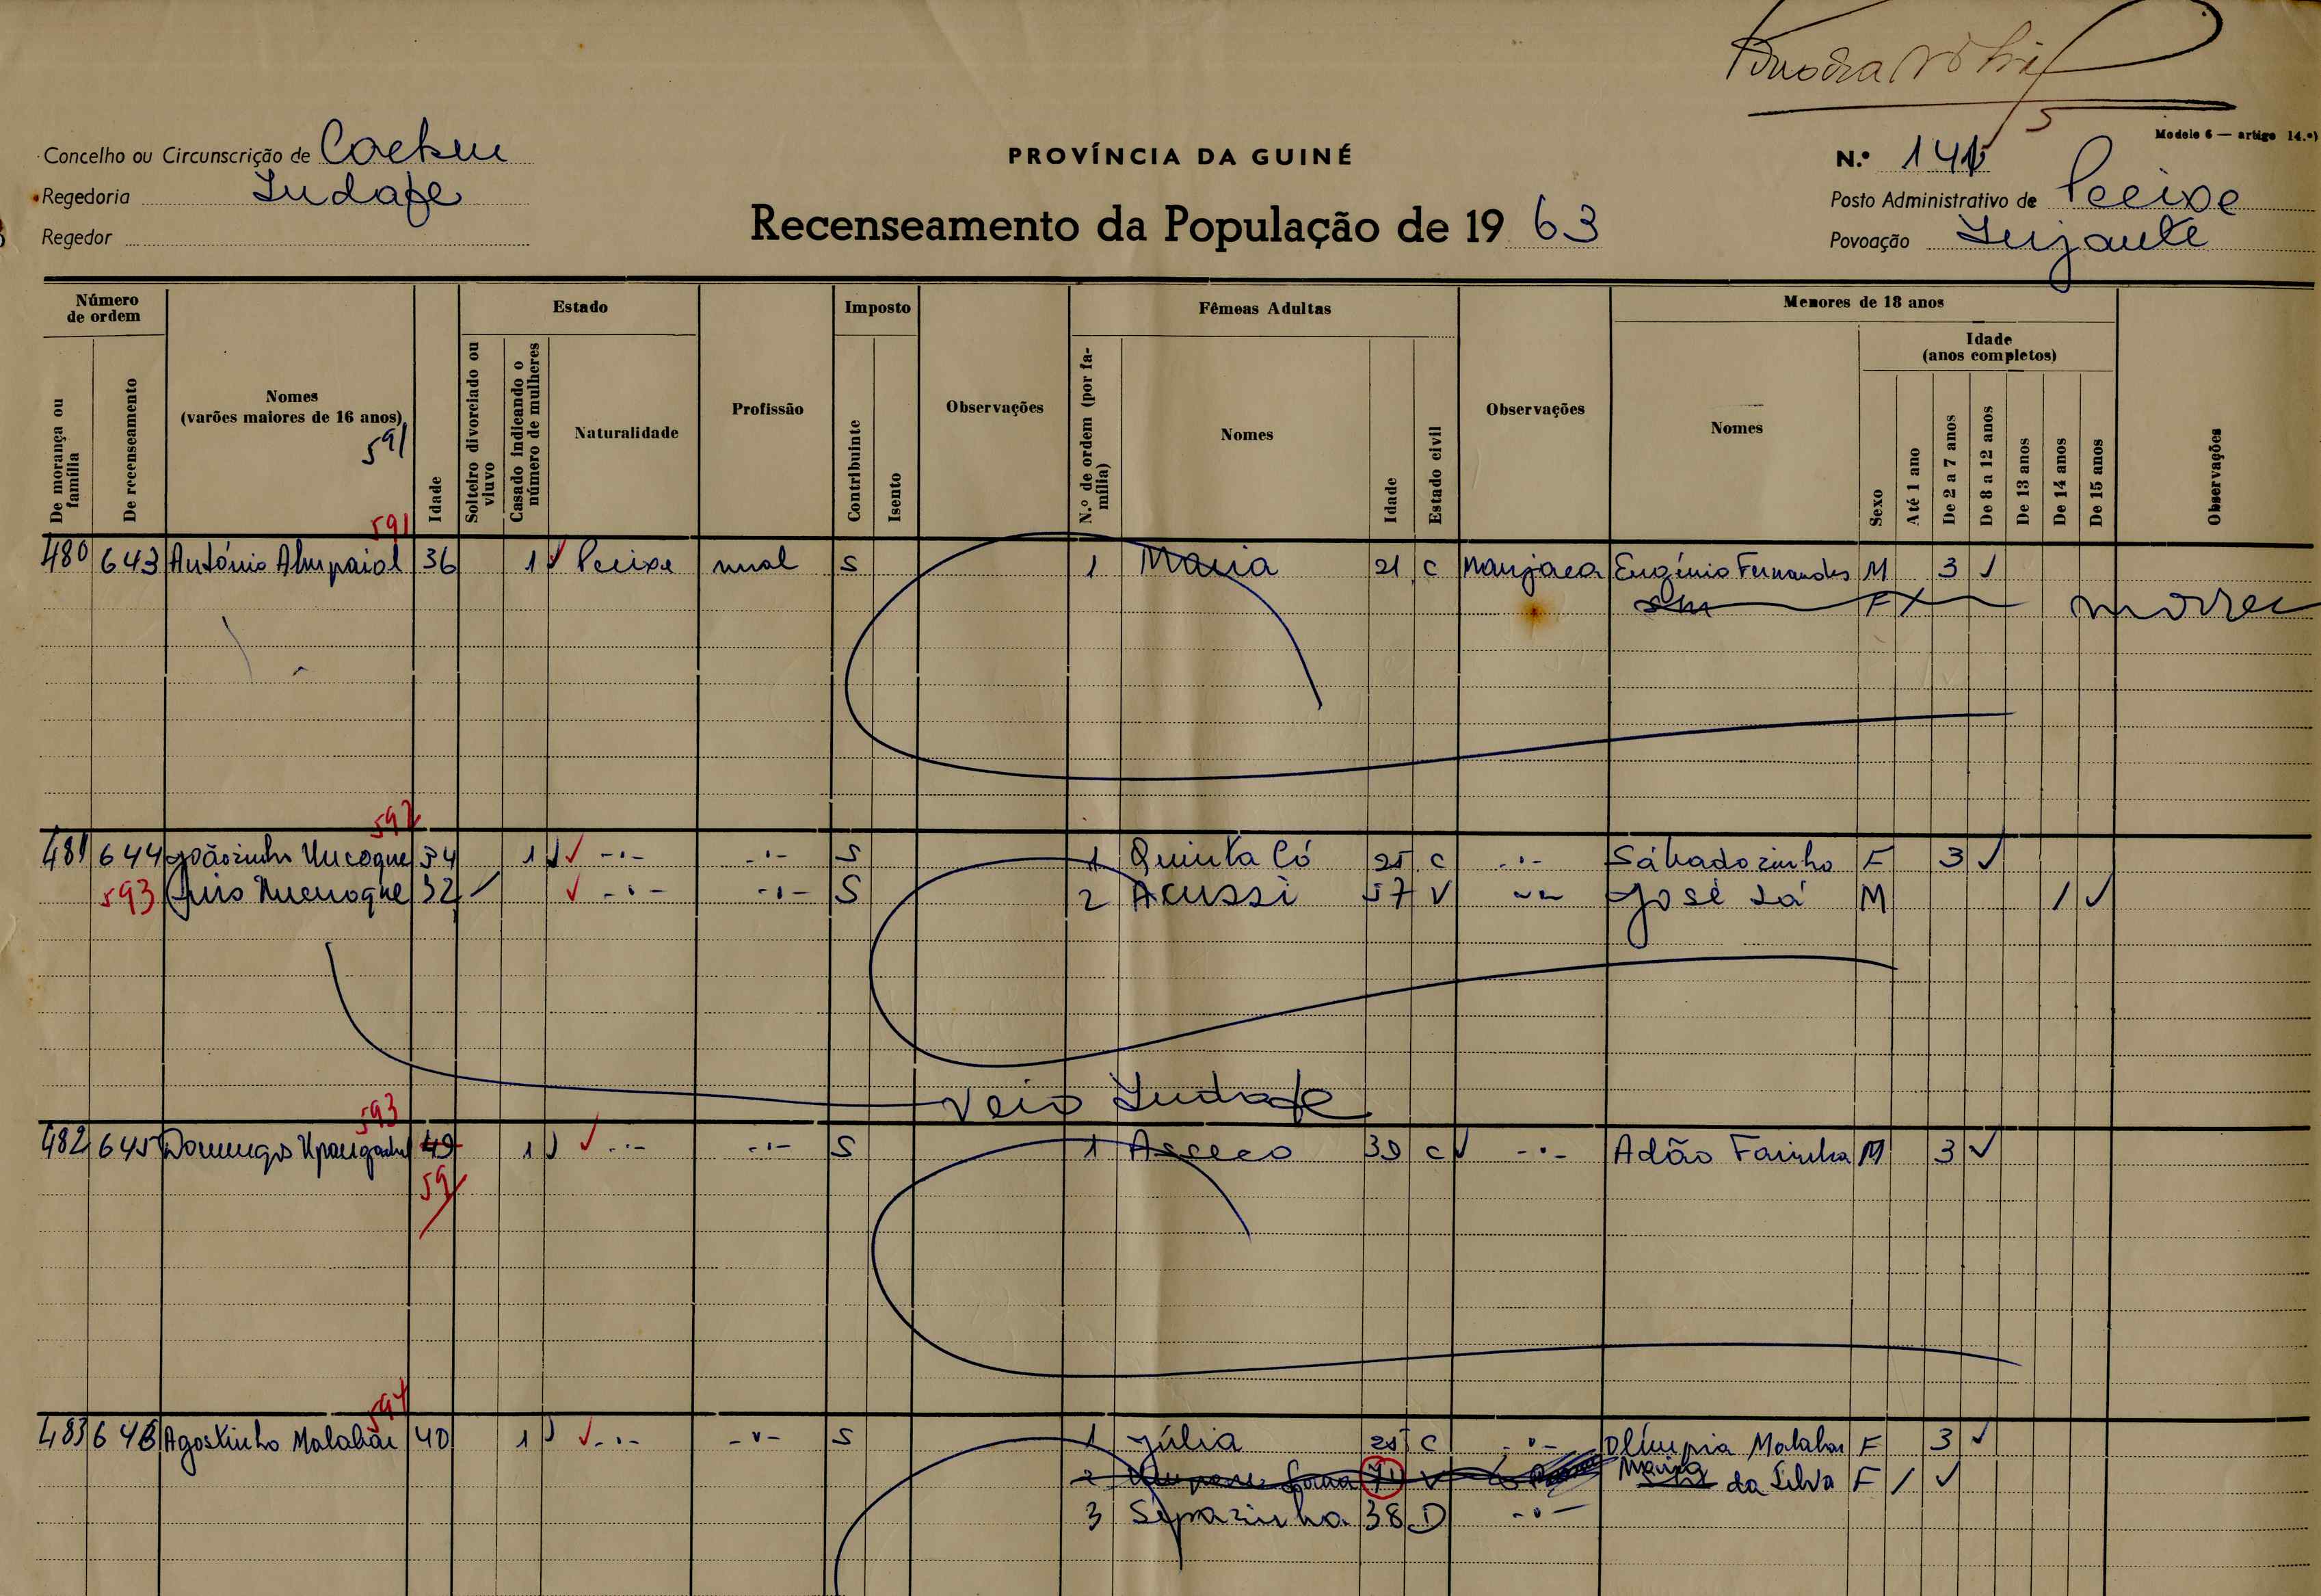 Modelo 6 — artigo 14.º)
Concelho ou Circunscrição de
PROVÍNCIA DA GUINÉ
N.º 141
Regedoria
Posto Administrativo de Peeixe
Recenseamento da População de 1963
Regedor
Povoação
Número de ordem
Estado
Imposto
Fêmeas Adultas
Menores de 18 anos
Idade (anos completos)
De morança ou família
De recenseamento
Nomes (varões maiores de 16 anos)
Idade
Solteiro divorciado ou viuvo
Casado indicando o número de mulheres
Naturalidade
Profissão
Contribuinte
Isento
Observações
N.º de ordem (por família)
Nomes
Idade
Estado civil
Observações
Nomes
Sexo
Até 1 ano
De 2 a 7 anos
De 8 a 12 anos
De 13 anos
De 14 anos
De 15 anos
Observações
591
591
480 643 António 36 1 Peeixe S 1 Maria 21 C Manjaca Eugénio Fernandes M 3
F morreu
592
481 644 Joãozinho 34 1 -·- -·- S 1 Quinta Có 25 C -·- Sábadozinho F 3
593 32 -·- -·- S 2 Acussi 57 V José Sá M /
veio
593
482 645 Domingos 49 1 -·- -·- S 1 39 C -·- Adão Farinha M 3
59
594
483 646 Agostinho Malabar 40 1 -·- -·- S 1 Júlia 25 C -·- Olímpia Malabar F 3
2 V Maria da Silva F /
3 Sipazinha 38 D -·-